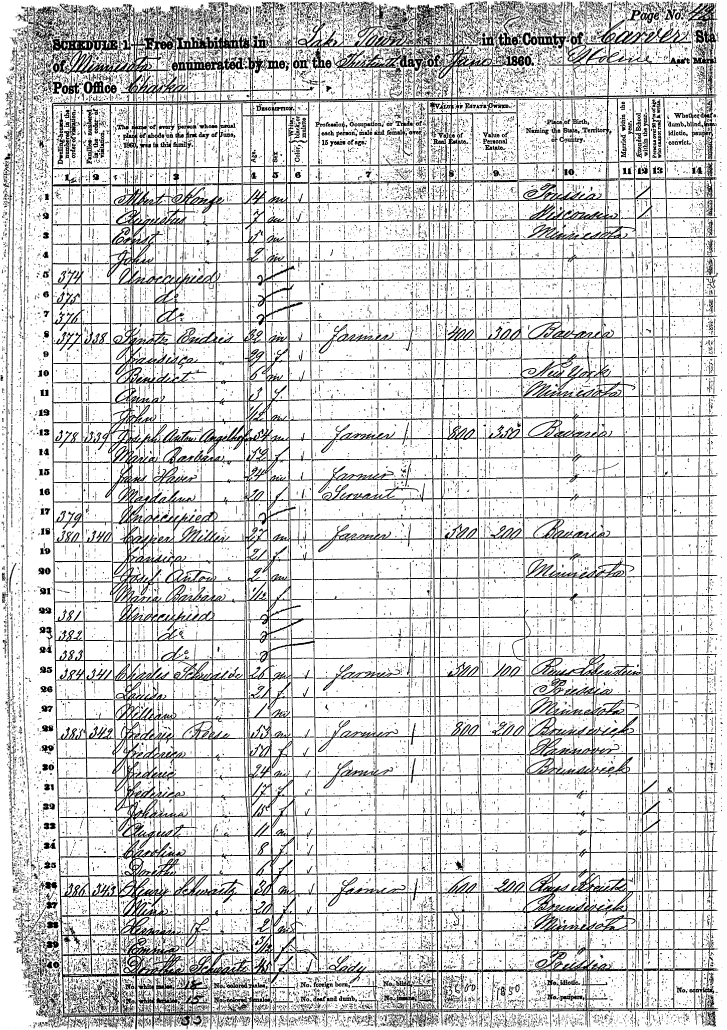 Page No. 43
SCHEDULE 1.—Free Inhabitants in Lake Town in the County of Carver Sta
of Minnesota enumerated by me, on the Thirteenth day of June 1860. Ass't Marsl
Post Office Chaska
DESCRIPTION. VALUE OF ESTATE OWNED.
The name of every person whose usual place of abode on the first day of June, 1860, was in this family. Age. Sex. Profession, Occupation, or Trade of each person, male and female, over 15 years of age. Value of Real Estate. Value of Personal Estate. Place of Birth, Naming the State, Territory, or Country. Married within the year. Whether deaf & dumb, blind, insane, idiotic, pauper, convict.
1 2 3 4 5 6 7 8 9 10 11 12 13 14
1 Albert 14 m Prussia /
2 Augustus " 7 m Wisconsin /
3 Ernst " 5 m Minnesota
4 John " 2 m "
5 374 Unoccupied
6 375 do
7 376 do
8 377 338 Endres 32 m farmer 400 300 Bavaria
9 Fransisca " 29 f "
10 Benedict " 6 m New York
11 Anna " 3 f Minnesota
12 John " 1/2 m "
13 378 339 Joseph Anton 54 m farmer 800 350 Bavaria
14 Maria Barbara " 52 f "
15 24 m farmer "
16 Magdalina " 20 f Servant "
17 379 Unoccupied
18 380 340 Casper Miller 27 m farmer 500 200 Bavaria
19 Fransica " 21 f "
20 Josef Anton " 2 m Minnesota
21 Maria Barbara " f "
22 381 Unoccupied
23 382 do
24 383 do
25 384 341 Charles 26 m farmer 500 100 Reuss Lobenstein
26 Louisa " 21 f Prussia
27 William " 1 m Minnesota
28 385 342 Frederic Reese 53 m farmer 800 200 Brunswick
29 Frederica " 50 f Hannover
30 Frederic " 24 m farmer Brunswick
31 Federica " 17 f " /
32 Johanna " 15 f " /
33 August " 11 m " /
34 Carolina " 8 f "
35 Dorothe " 6 f "
36 386 343 Henry Schwartz 30 m farmer 600 200
37 Mina " 20 f Brunswick
38 Herman F. " 2 m Minnesota
39 Emma " 3/12 f "
40 Dorothia Schwartz f Lady Prussia
No. white males, 18 No. colored males, No. foreign born, No. blind, No. idiotic,
No. white females, 15 No. colored females, No. deaf and dumb, No. insane, No. paupers, No. convicts,
33